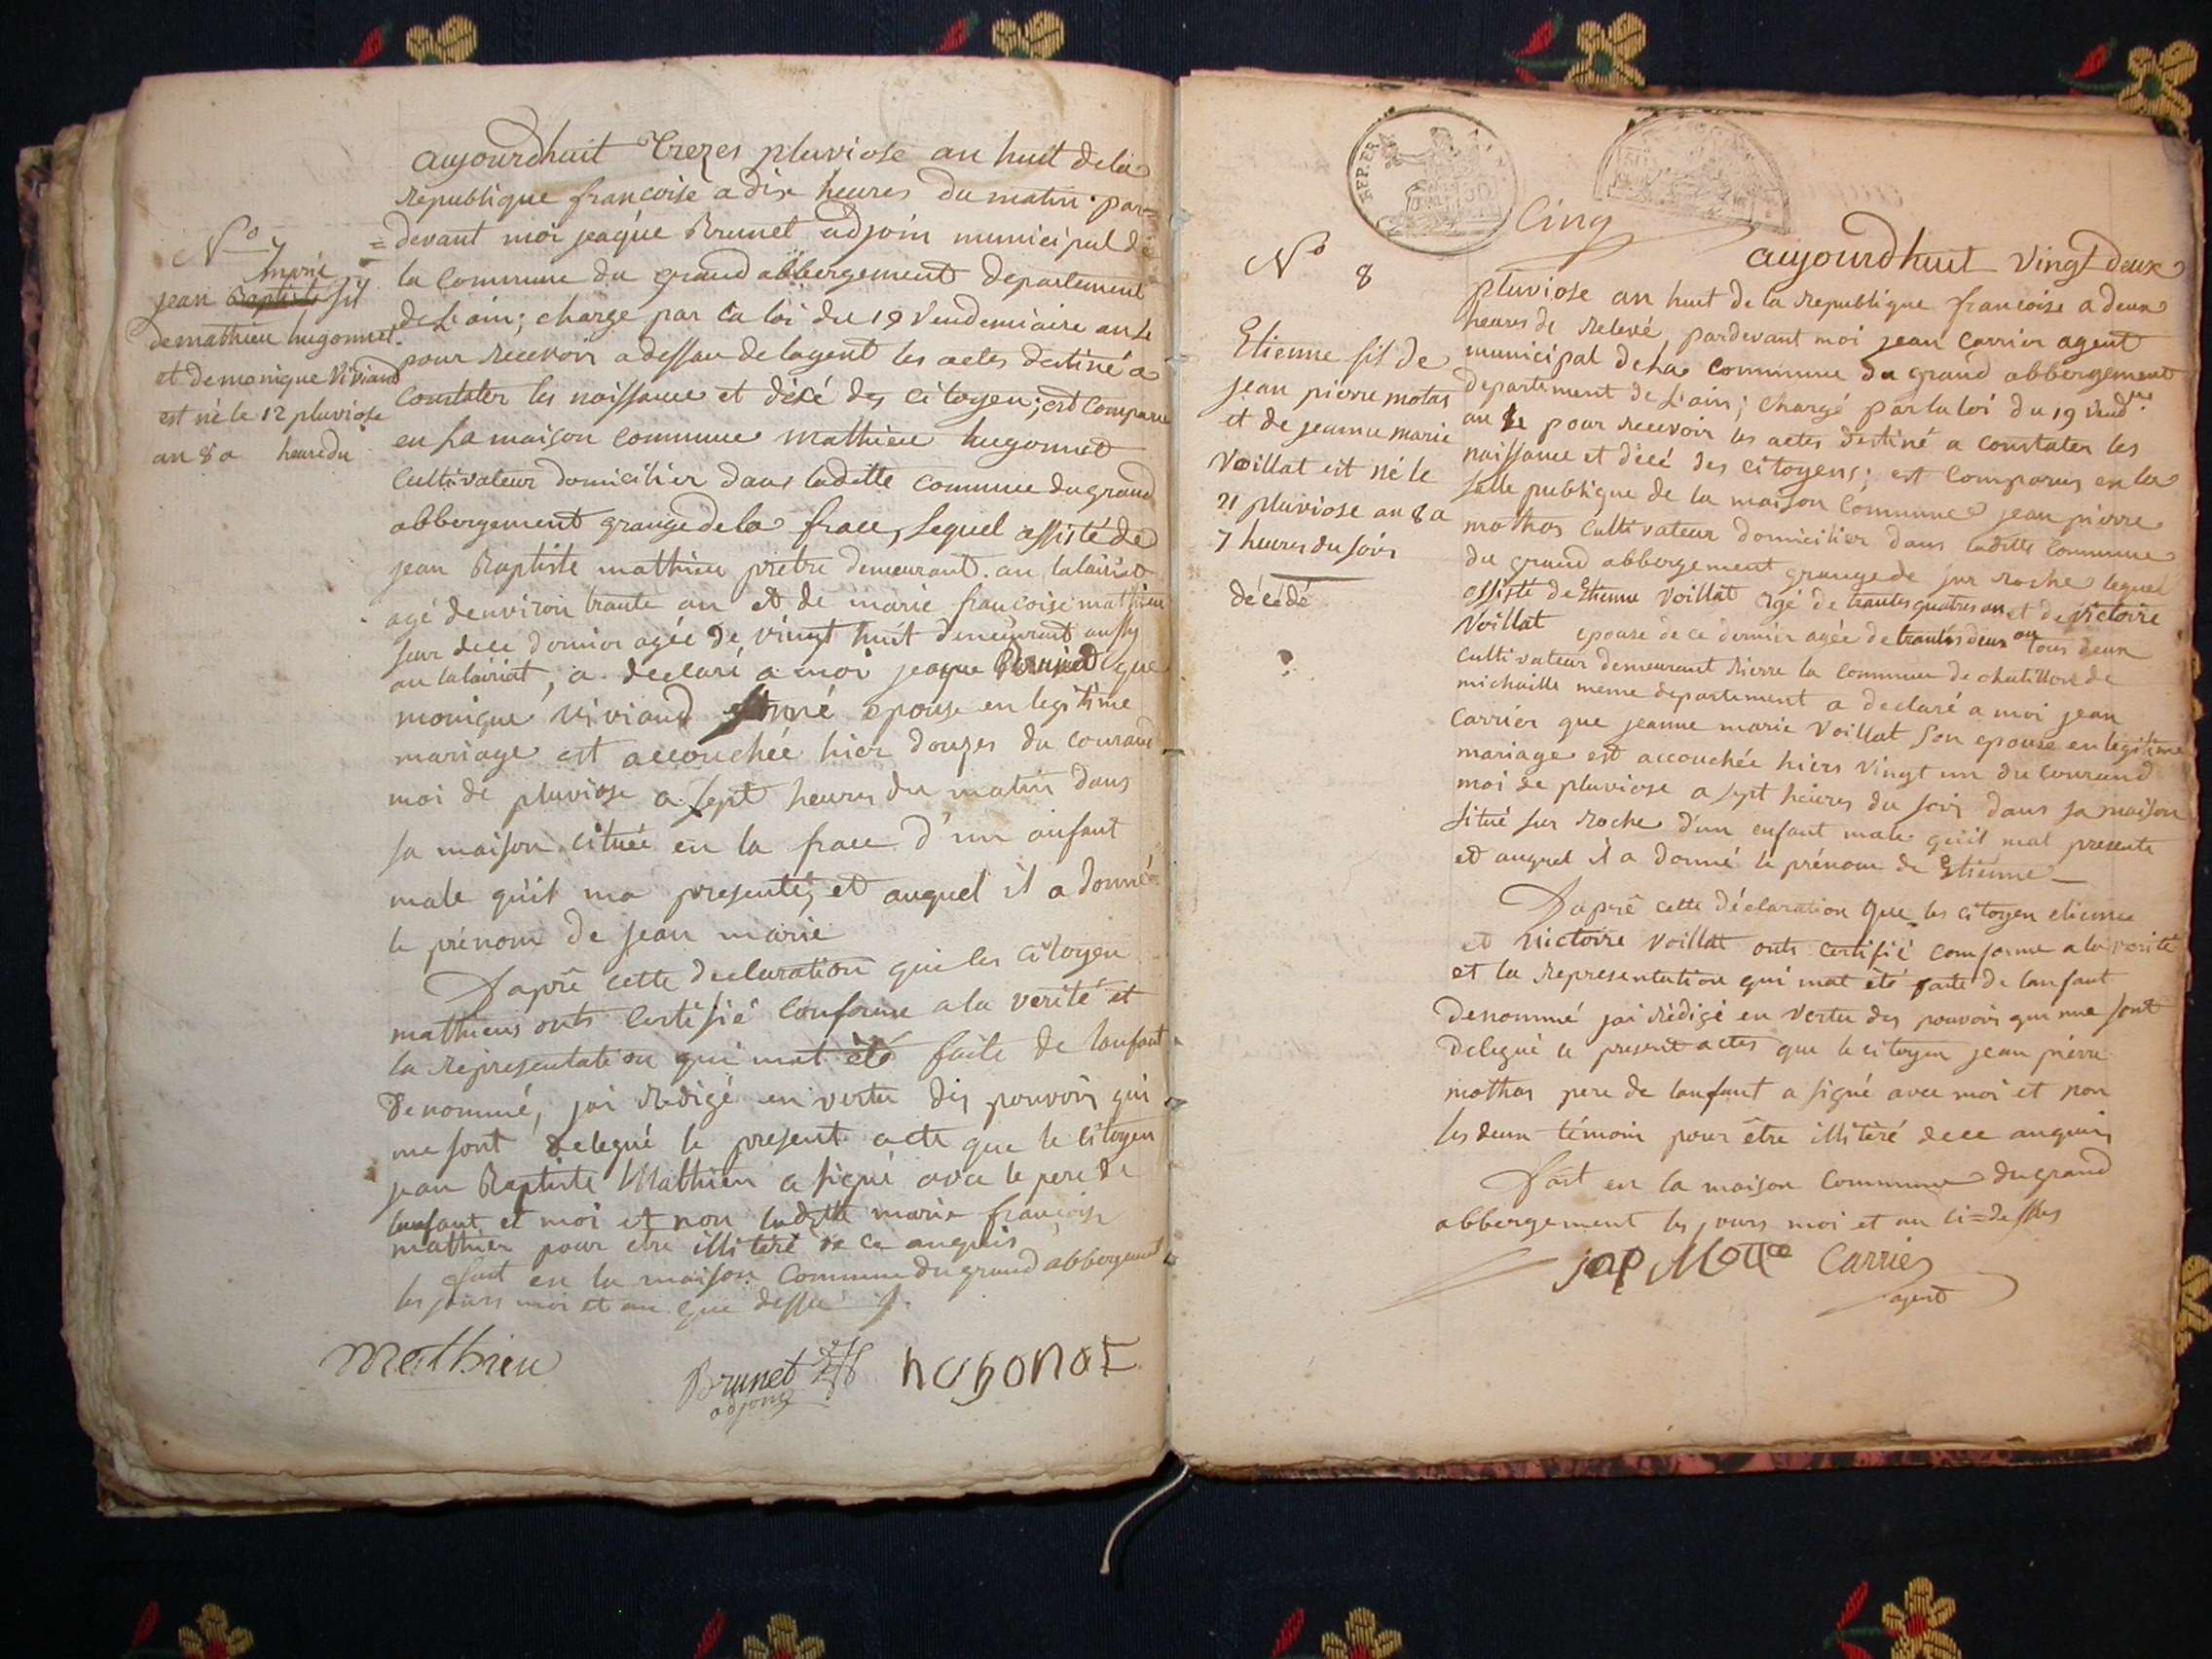 aujourdhuit trezes pluviose an huit dela
republique francoise a dix heures du matin par=
=devant moi jeaque Brunet adjoin municipal de
la commune du grand abbergement departement
de L'ain; charge par la loi du 19 vendemiaire an 4
pour recevoir adessau de lagent les actes destiné a
constater les naissance et décé des citoyen; est comparu
en la maison commune mathieu hugonnet
cultivateur domicilier dans ladette commune du grand
abbergement grange de la frace, lequel assisté de
jean Baptiste mathieu pretre demeurant au lalairiat
agé denviron trante an et de marie francoise mathieu
seur dece dernier agée de vingt huit demeurant aussy
au lalairiat, a declaré a moi jeaque Brunet que
monique viviand epouse en legitime
mariage est accouchée hier douzes du courand
moi de pluviose a sept heures du matin dans
sa maison cituée en la frace d'un anfant
male quil ma presenté, et auquel il a donné
le prénom de jean marie
Daprê cette declaration que les citoyen
mathieus onts certifié conforme a la verité et
la representation qui mat été faite de lanfant
denommé, jai redigé en vertu des pouvoirs qui
me sont delegué le present acte que le citoyen
jean Baptiste Mathieu a signé avec le pere de
lanfant et moi et non ladette marie francoise
mathieu pour etre illiteré de ce anquis
fait en la maison commune du grand abbergement
les jours moi et an que dessu
mathieu
Brunet
adjoing
hugonat
No 7
marie
jean Baptiste fil
de mathieu hugonnet
et de monique viviand
est né le 12 pluviose
an 8 a heure du
REP.FRA
Cinq
No 8
Etienne fil de
jean pierre motas
et de jeanne marie
Voillat est né le
21 pluviose an 8 a
7 heures du soir
décédé
?
aujourdhuit vingt deux
pluviose an huit de la republique francoise a deux
heures de relevé pardevant moi jean carrier agent
municipal de la commune du grand abbergement
departement de L'ain; chargé par la loi du 19 vend.re
an 4 pour recevoir les actes destiné a constater les
naissance et décé des citoyens; est comparus en la
salle publique de la maison commune jean pierre
mothas cultivateur domicilier dans ladette commune
du grand abbergement grange de sur roche lequel
assisté de Etienne Voillat agé de trantes quatres an et de victoire
Voillat epouse de ce dernier agée de trantes deux an tous deux
cultivateur demeurant rierre la commune de chatillon de
michaille meme departement a declaré a moi jean
carrier que jeanne marie Voillat son epouse en legitime
mariage est accouchée hiers vingt un du courand
moi de pluviose a sept heures du soir dans sa maison
situé sur roche d'un enfant male quil mat presente
et auquel il a donné le prénom de Etienne
Daprê cette déclaration que les citoyen etienne
et victoire Voillat onts certifié comforme a la verité
et la representation qui mat été faite de lanfant
denommé jai rédigé en vertu des pouvoirs qui me sont
delegué ce present actes que le citoyen jean pierre
mothas pere de lanfant a signé avec moi et non
les deux témoin pour être illiteré dece anquis
fait en la maison commune du grand
abbergement les jours moi et an ci=dessus
jap Motta Carrier
agent